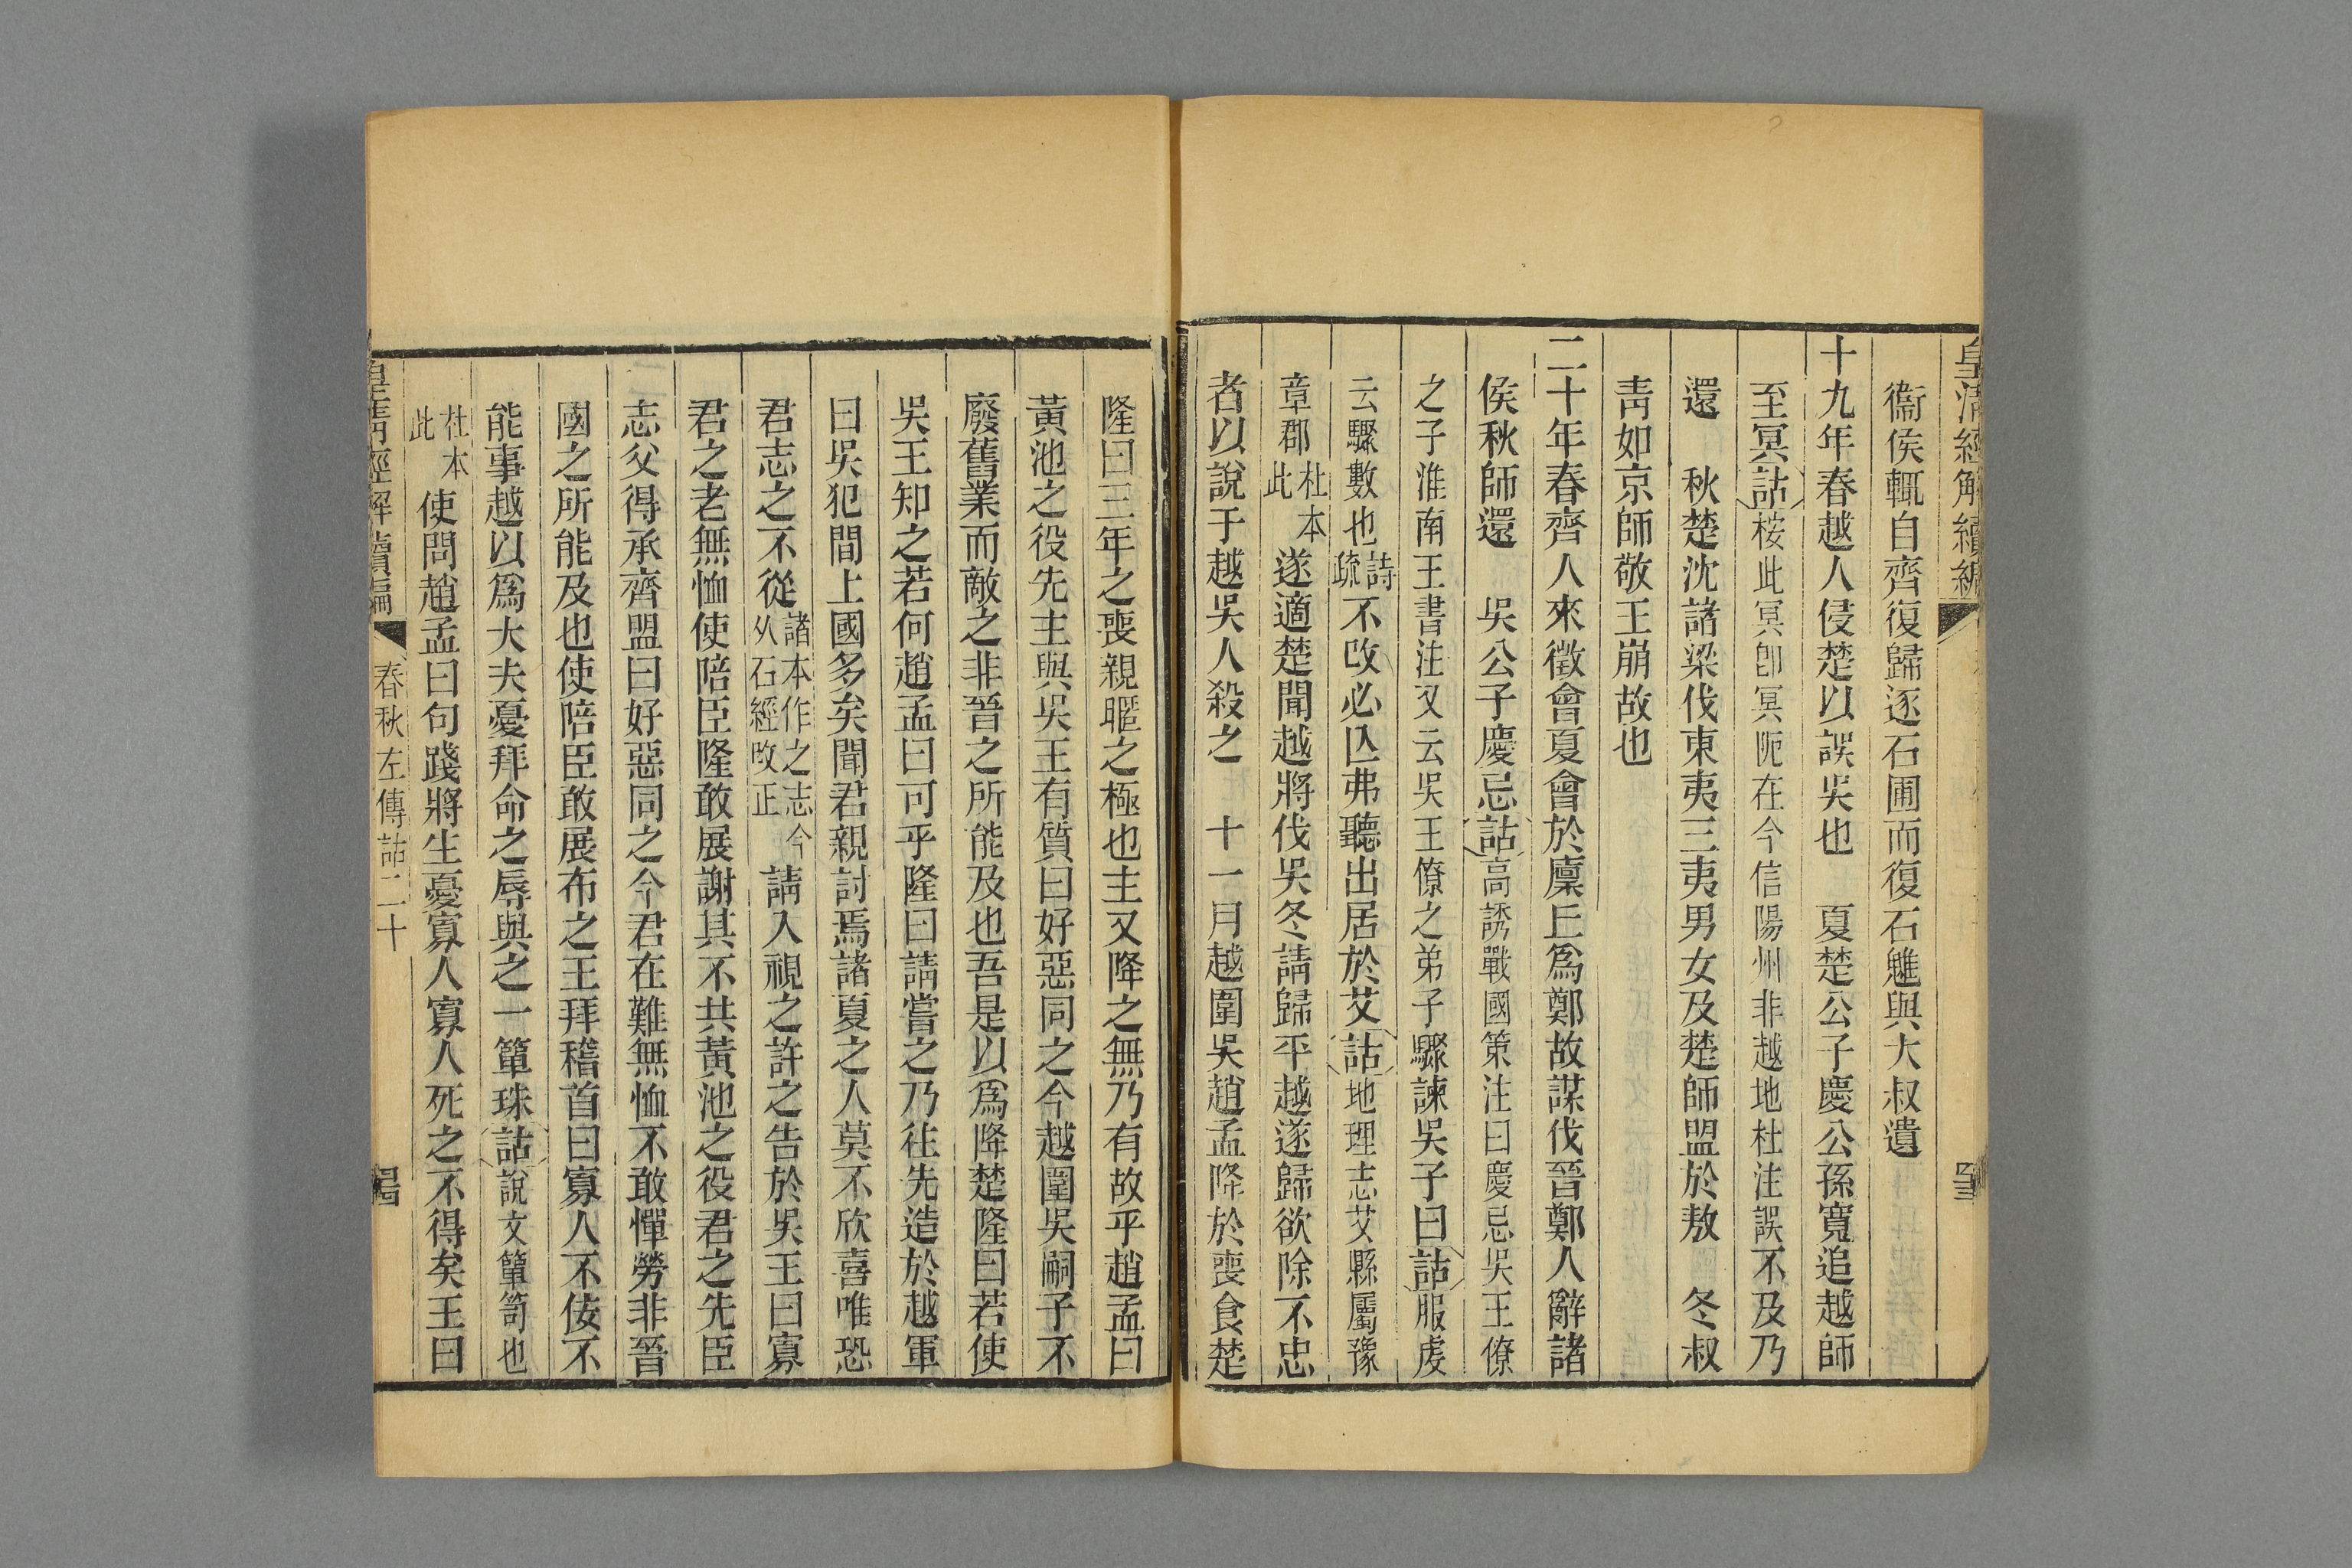 皇清經解續編
衞侯輒自齊復歸逐石圃而復石魋與大叔遺
十九年春越人侵楚以誤吳也　夏楚公子慶公孫寬追越師
至冥詁桉此冥卽冥阨在今信陽州非越地杜注誤不及乃
還　秋楚沈諸梁伐東夷三夷男女及楚師盟於敖　冬叔
靑如京師敬王崩故也
二十年春齊人來徵會夏會於廩丘爲鄭故謀伐晉鄭人辭諸
侯秋師還　吳公子慶忌詁高誘戰國策注曰慶忌吳王僚
之子淮南王書注又云吳王僚之弟子驟諫吳子曰詁服虔
云驟數也詩疏不改必亾弗聽出居於艾詁地理志艾縣屬豫
章郡杜本此遂適楚聞越將伐吳冬請歸平越遂歸欲除不忠
者以說于越吳人殺之　十一月越圍吳趙孟降於喪食楚
隆曰三年之喪親暱之極也主又降之無乃有故乎趙孟曰
黃池之役先主與吳王有質曰好惡同之今越圍吳嗣子不
廢舊業而敵之非晉之所能及也吾是以爲降楚隆曰若使
吳王知之若何趙孟曰可乎隆曰請嘗之乃往先造於越軍
曰吳犯間上國多矣聞君親討焉諸夏之人莫不欣喜唯恐
君志之不從諸本作之志今从石經改正請入視之許之告於吳王曰寡
君之老無恤使陪臣隆敢展謝其不共黃池之役君之先臣
志父得承齊盟曰好惡同之今君在難無恤不敢憚勞非晉
國之所能及也使陪臣敢展布之王拜稽首曰寡人不佞不
能事越以爲大夫憂拜命之辱與之一簞珠詁說文簞笥也
杜本此使問趙孟曰句踐將生憂寡人寡人死之不得矣王曰
皇淸經解續編　春秋左傳詁二十